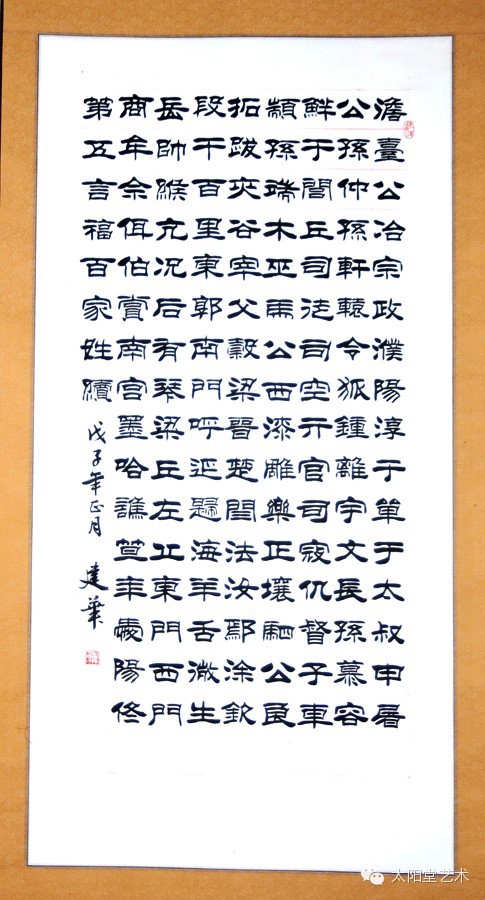 澹臺公冶宗政濮陽淳于單于太叔申屠
公孫仲孫軒轅令狐鍾離宇文長孫慕容
鮮于閭丘司徒司空亓官司寇仉督子車
顓孫端木巫馬公西漆雕樂正壤駟公良
拓跋夾谷宰父穀梁晉楚閆法汝鄢涂欽
段干百里東郭南門呼延歸海羊舌微生
岳帥緱亢况后有琴梁丘左丘東門西門
商牟佘佴伯賞南宫墨哈譙笪年愛陽佟
第五言福百家姓續
戊子年正月 建華
太阳堂艺术